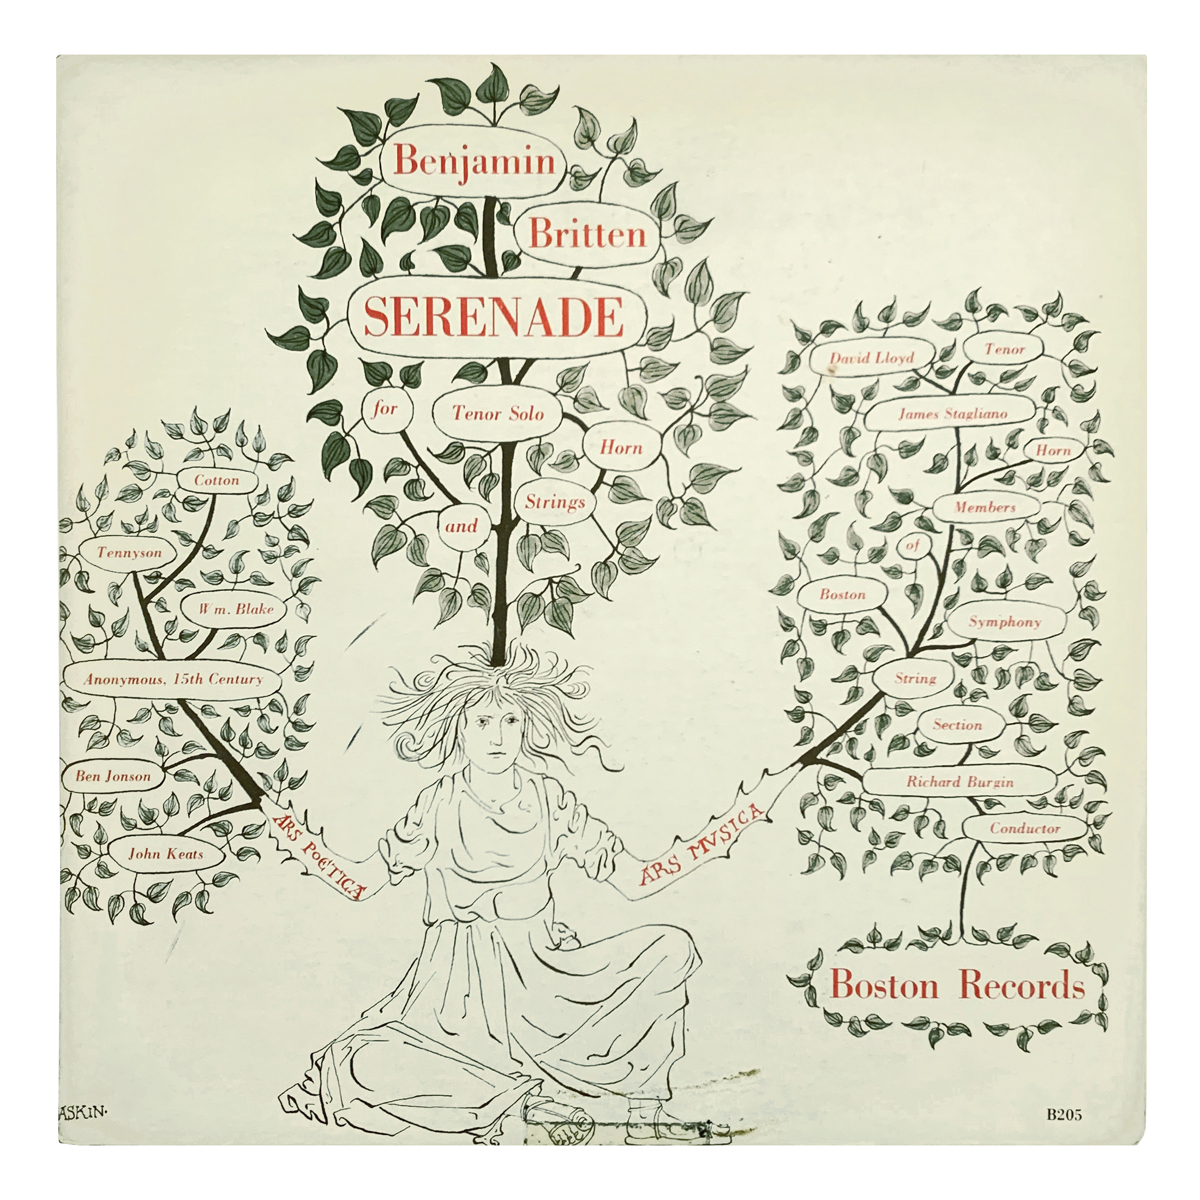 Benjamin
Britten
SERENADE
for
Tenor Solo
Horn
and
Strings
Cotton
Tennyson
Wm. Blake
Anonymous, 15th Century
Ben Jonson
John Keats
ARS POETICA
ARS MVSICA
David Lloyd
Tenor
James Stagliano
Horn
Members
of
Boston
Symphony
String
Section
Richard Burgin
Conductor
Boston Records
ASKIN.
B205